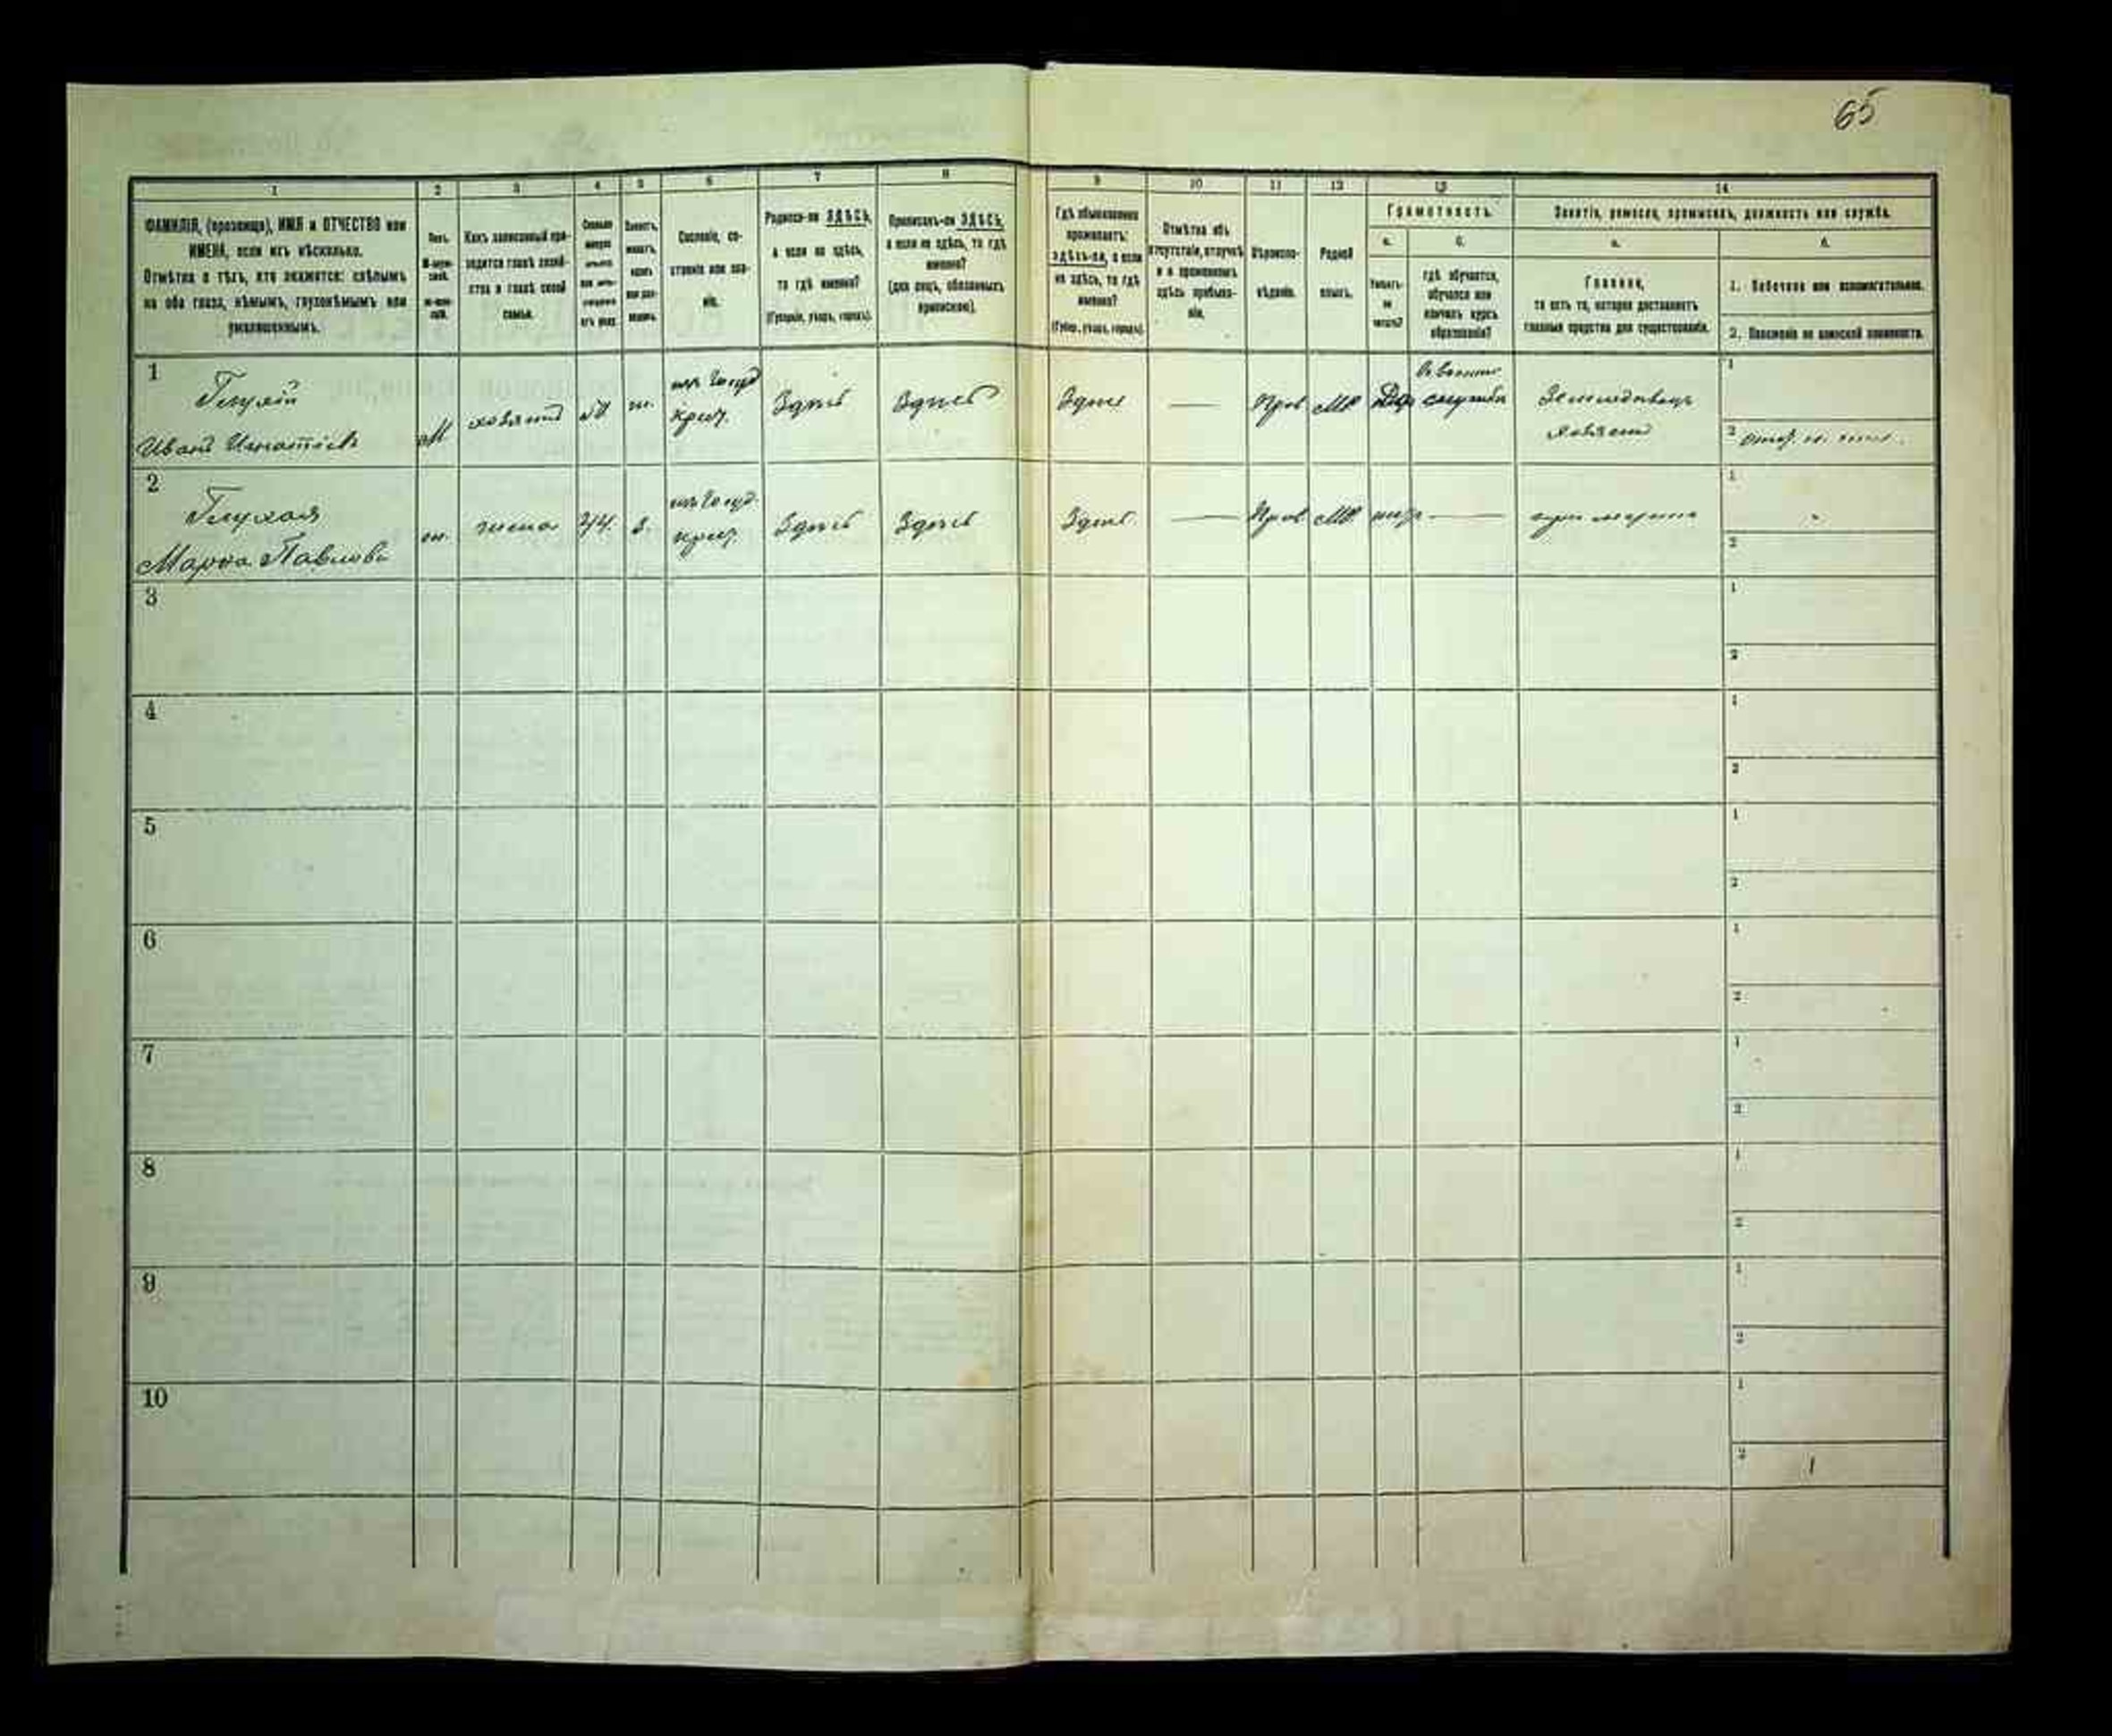 65
1 2 3 4 5 6 7 8 9 10 11 12 13 14
ФАМИЛІЯ, (прозвище), ИМЯ и ОТЧЕСТВО или
ИМЕНА, если ихъ нѣсколько.
Отмѣтка о тѣхъ, кто окажется: слѣпымъ
на оба глаза, нѣмымъ, глухонѣмымъ или
умалишеннымъ.
Полъ.
Какъ записанный при-
ходится главѣ хозяй-
ства и главѣ своей
семьи.
Сословіе, со-
стояніе или зва-
ніе.
Родился-ли ЗДѢСЬ,
а если не здѣсь,
то гдѣ именно?
(Губернія, уѣздъ, городъ).
Приписанъ-ли ЗДѢСЬ,
а если не здѣсь, то гдѣ
именно?
(для лицъ, обязанныхъ
припискою).
Гдѣ обыкновенно
проживаетъ:
здѣсь-ли, а если
не здѣсь, то гдѣ
именно?
(Губер., уѣздъ, городъ).
Отмѣтка объ
отсутствіи, отлучкѣ
и о временномъ
здѣсь пребыва-
ніи.
Вѣроиспо-
вѣданіе.
Родной
языкъ.
Грамотность.
а. б.
Умѣетъ-
ли
читать?
гдѣ обучается,
обучался или
кончилъ курсъ
образованія?
Занятіе, ремесло, промыселъ, должность или служба.
а. б.
Главное,
то есть то, которое доставляетъ
главныя средства для существованія.
1. Побочное или вспомогательное.
2. Положеніе по воинской повинности.
1
Глухій
Иванъ Игнатіевъ
М
хозяинъ
ж.
крест.
Здѣсь
Здѣсь
Здѣсь
—
Прав
МР
Да
службѣ
Земледѣлецъ
хозяинъ
1
2
2
Глухая
Марѳа Павлова
ж.
жена
44
з.
крест.
Здѣсь
Здѣсь
Здѣсь
—
Прав
МР
—
при мужѣ
1
2
3
1
2
4
1
2
5
1
2
6
1
2
7
1
2
8
1
2
9
1
2
10
1
2